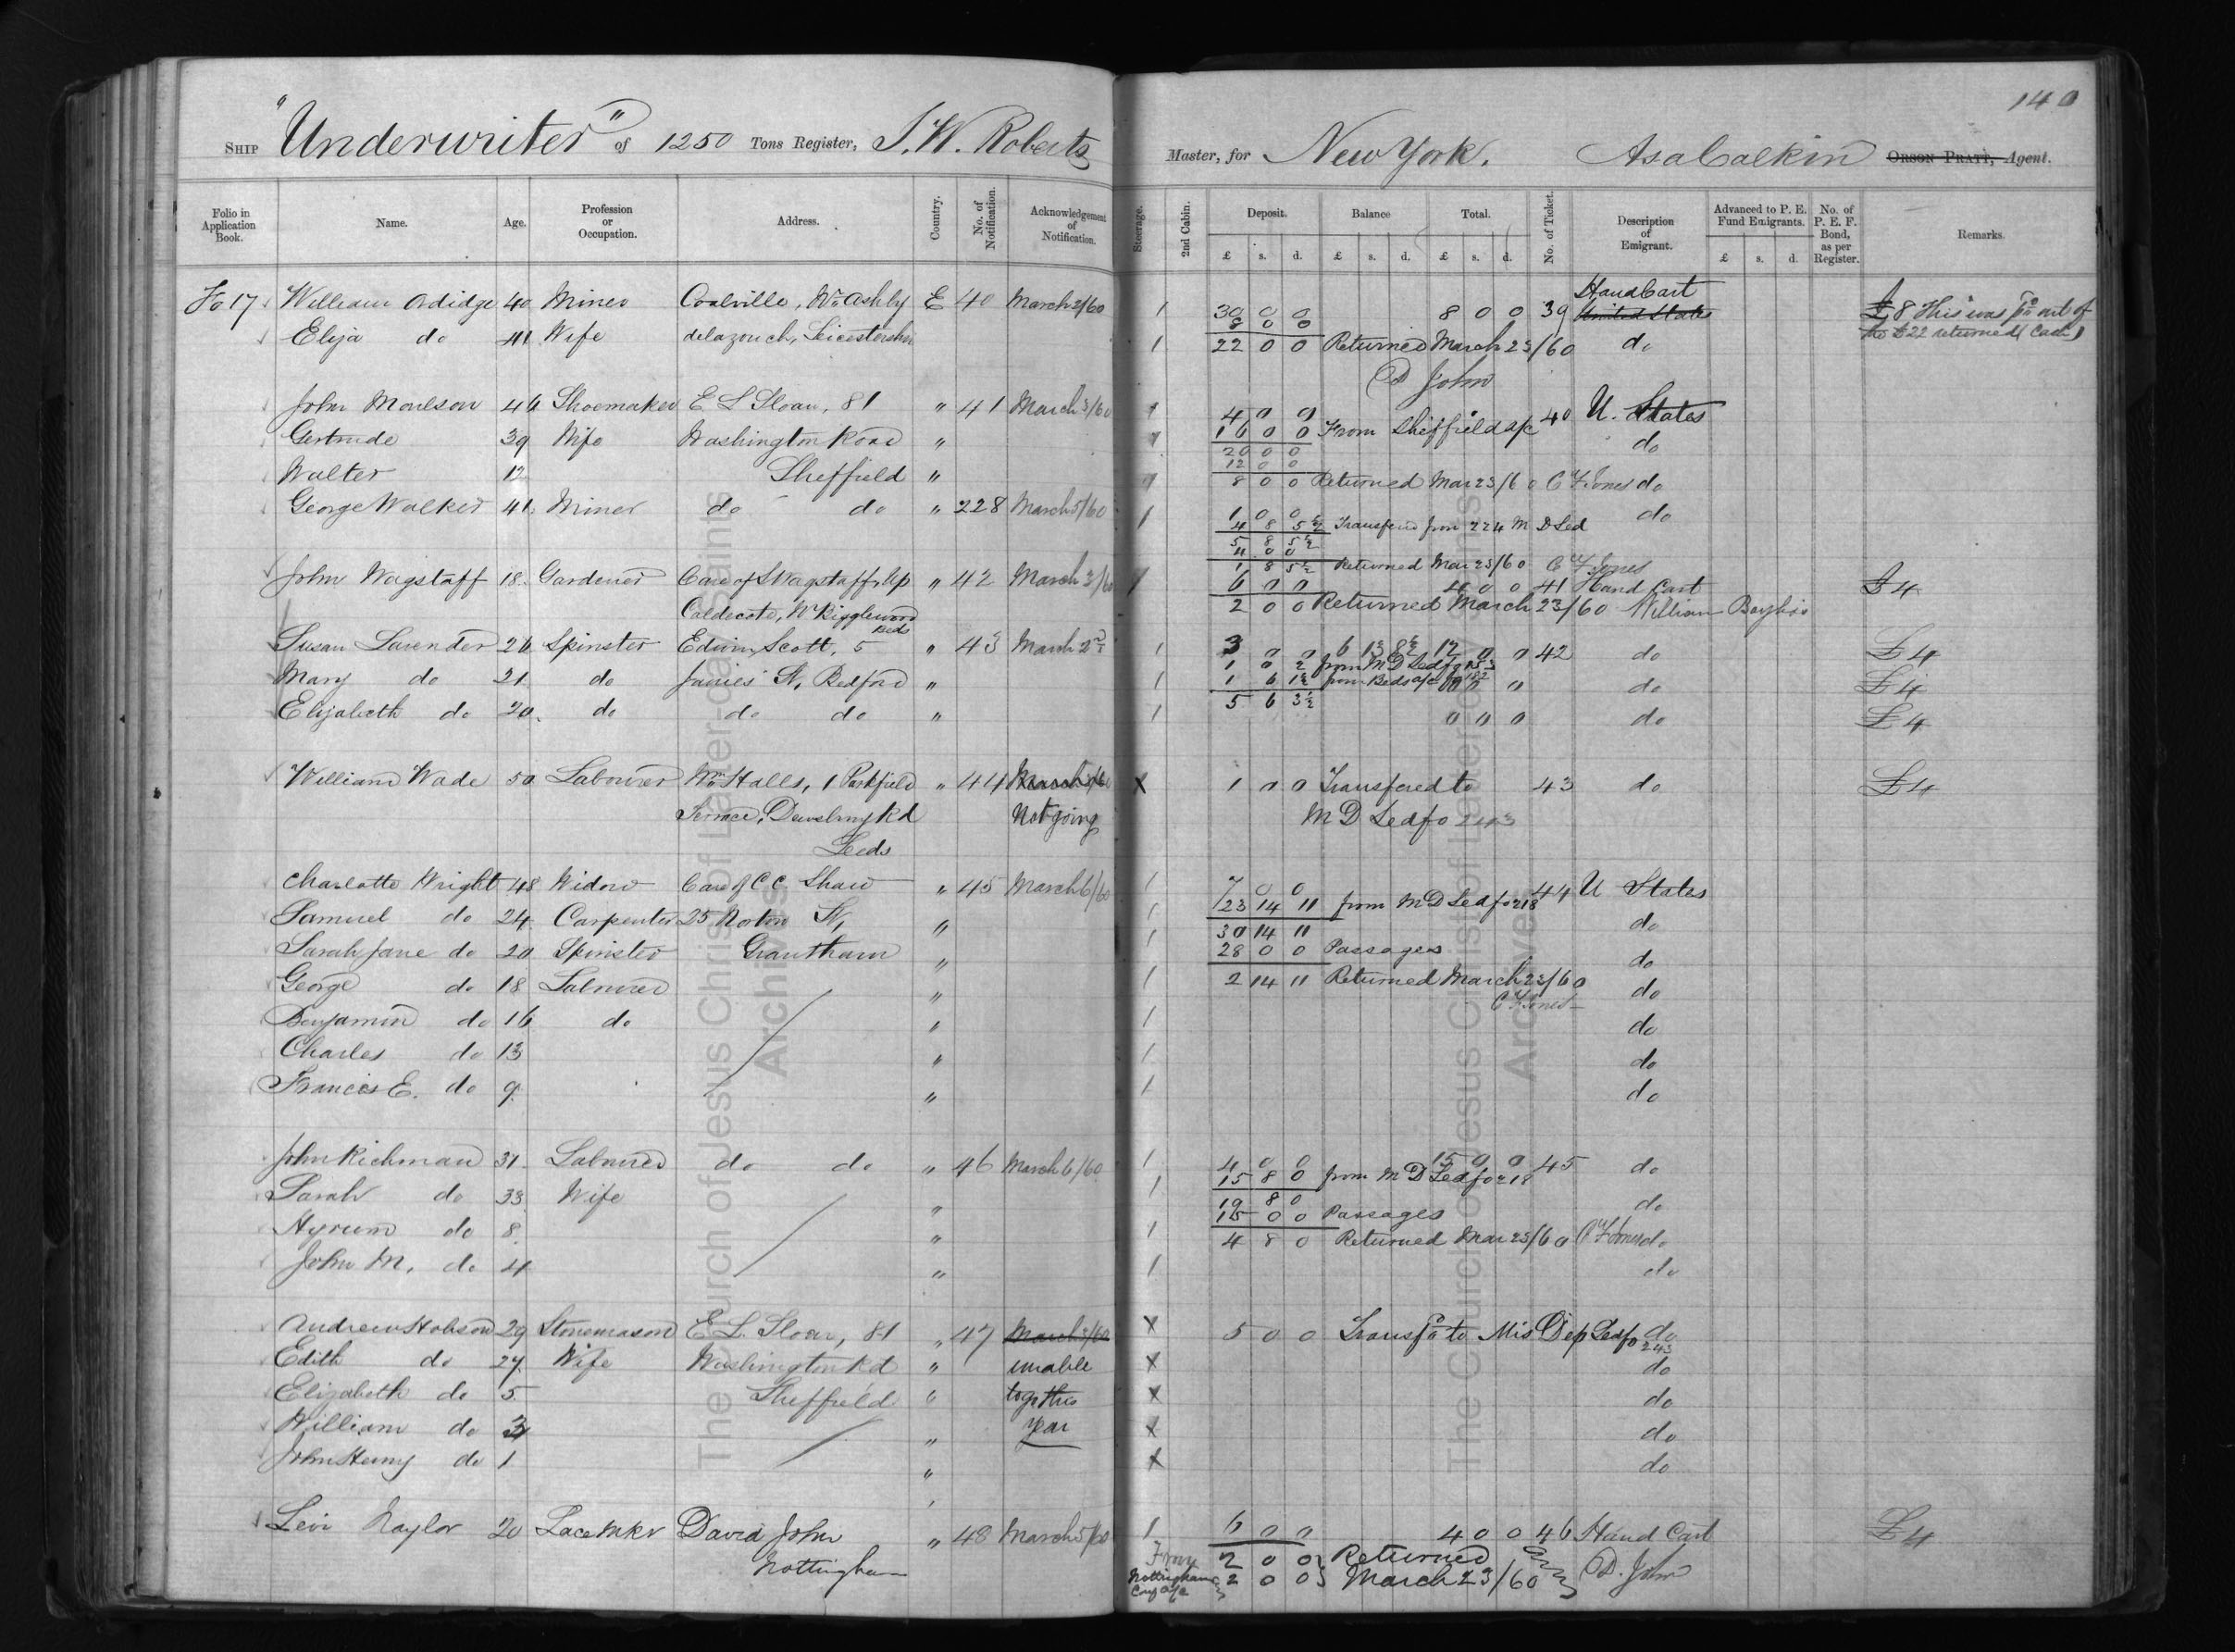 140
Ship "Underwriter" of 1250 Tons Register, J. W. Roberts Master, for New York. Asa Calkin Orson Pratt, Agent.
Folio in Application Book. Name. Age. Profession or Occupation. Address. Country. No. of Notification. Acknowledgement of Notification. Steerage. 2nd Cabin. Deposit. Balance Total. No. of Ticket. Description of Emigrant. Advanced to P. E. Fund Emigrants. No. of P. E. F. Bond, as per Register. Remarks.
£ s. d. £ s. d. £ s. d. £ s. d.
Hand Cart
Fo 17 William Ordidge 40 Miner Coalville, Nr Ashby E 40 March 2/60 1 30 0 0 8 0 0 39 United States £8 This was pd out of
8 0 0
Eliza do 41 Wife delazouch, Leicestershire 1 22 0 0 Returned March 23/60 do the £22 returned (Cash)
D John
John Moulson 46 Shoemaker E L Sloan, 81 " 41 March 3/60 1 4 0 0 40 U. States
Gertrude 39 Wife Washington Road " 1 16 0 0 From Sheffield a/c do
20 0 0
12 0 0
Walter 12 Sheffield " 1 8 0 0 Returned Mar 23/60 C F Jones do
George Walker 41 Miner do do " 228 March 5/60 1 1 0 0 do
4 8 5½ Transferred from 224 M D Led
5 8 5½
4 0 0
1 8 5½ Returned Mar 23/60 C F Jones
John Wagstaff 18 Gardener Care of S Wagstaff, Up " 42 March 3/60 1 6 0 0 4 0 0 41 Hand Cart £4
Caldecote, Nr Bigglesward Beds 2 0 0 Returned March 23/60 William Bayliss
Susan Lavender 26 Spinster Edwin Scott, 5 " 43 March 2nd 1 3 0 0 6 13 8½ 12 0 0 42 do £4
1 0 2 from M D Led fo 153
Mary do 21 do James St, Bedford " 1 1 6 1½ from Beds a/c 0 0 0 do £4
5 6 3½
Elizabeth do 20 do do do " 1 0 0 0 do £4
William Wade 50 Labourer Wm Halls, 1 Parkfield " 44 March X 1 0 0 Transfered to 43 do £4
Terrace, Dewsbury Rd Not going M D Led fo 243
Leeds
Charlotte Wright 48 Widow Care of C C Shaw " 45 March 6/60 1 7 0 0 44 U States
Samuel do 24 Carpenter 25 Norton St, " 1 23 14 11 from M D Led fo 218 do
30 14 11
Sarah Jane do 20 Spinster Grantham " 1 28 0 0 Passages do
George do 18 Labourer " 1 2 14 11 Returned March 23/60 do
C F Jones
Benjamin do 16 do " 1 do
Charles do 13 " 1 do
Francis E. do 9 " 1 do
John Richman 31 Labourer do do " 46 March 6/60 1 4 0 0 15 0 0 45 do
15 8 0 from M D Led fo 218
Sarah do 33 Wife " 1 19 8 0 do
15 0 0 Passages
Hyrum do 8 " 1 4 8 0 Returned Mar 23/60 C F Jones do
John M. do 4 " 1 do
Andrew Hobson 29 Stonemason E L Sloan, 81 " 47 March X 5 0 0 Transfd to Mis Dep Led fo 243 do
Edith do 27 Wife Washington Rd " unable X do
Elizabeth do 5 Sheffield " to go this X do
William do 3 " year X do
John Henry do 1 " X do
Levi Naylor 20 Lace Mkr David John " 48 March 5/60 1 6 0 0 4 0 0 46 Hand Cart £4
Nottingham From 2 0 0 Returned D. John
Nottingham 2 0 0 March 23/60
The Church of Jesus Christ of Latter-day Saints
Archives
The Church of Jesus Christ of Latter-day Saints
Archives